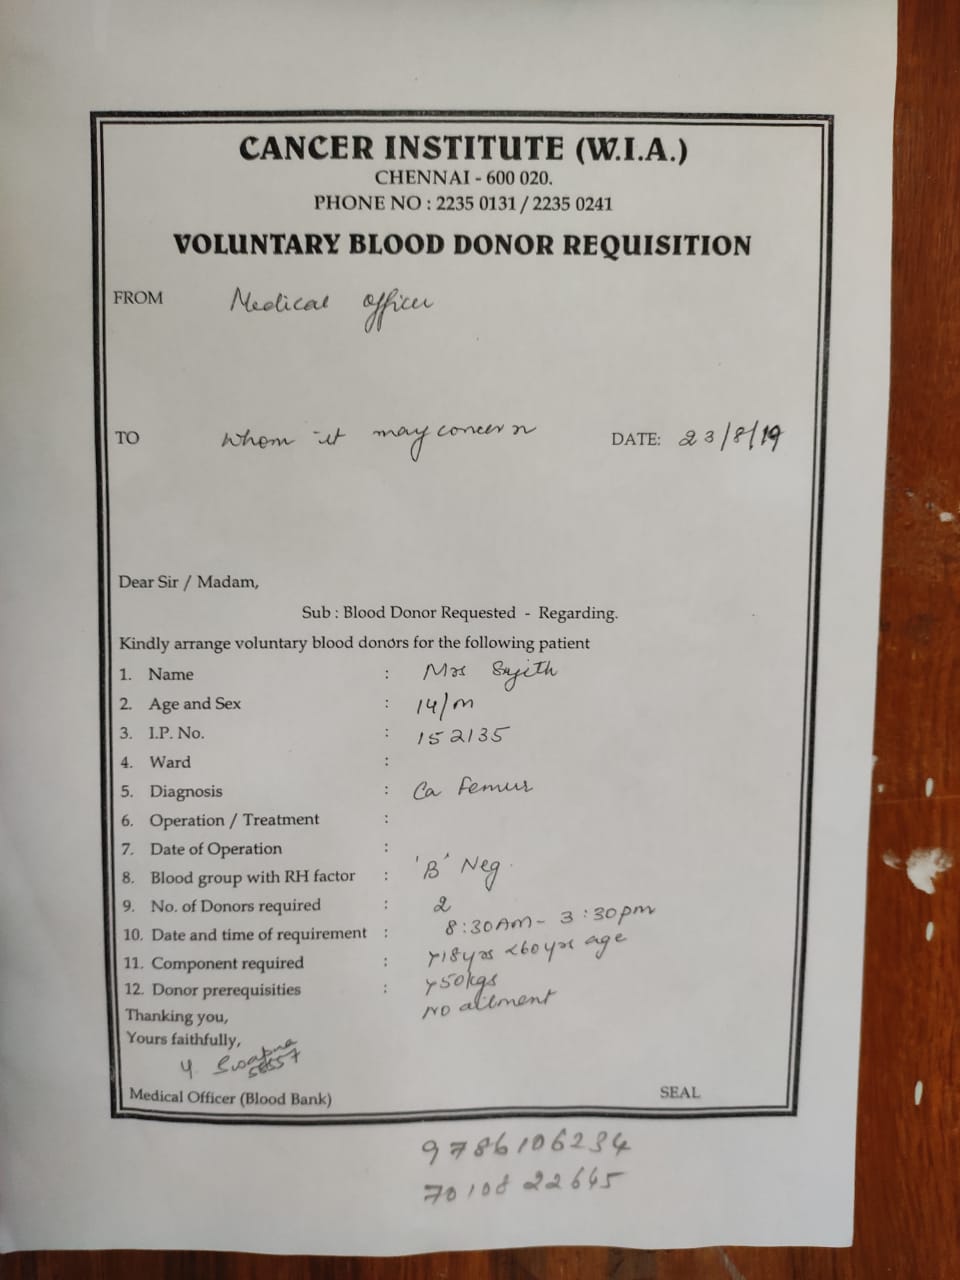 CANCER INSTITUTE (W.I.A.)
CHENNAI - 600 020.
PHONE NO : 2235 0131 / 2235 0241
VOLUNTARY BLOOD DONOR REQUISITION
FROM Medical officer
TO whom it may concern DATE: 23/8/19
Dear Sir / Madam,
Sub : Blood Donor Requested - Regarding.
Kindly arrange voluntary blood donors for the following patient
1. Name :
2. Age and Sex : 14/m
3. I.P. No. : 152135
4. Ward :
5. Diagnosis : Ca Femur
6. Operation / Treatment :
7. Date of Operation :
8. Blood group with RH factor : 'B' Neg
9. No. of Donors required : 2
10. Date and time of requirement : 8:30AM - 3:30pm
11. Component required : >18yrs <60yrs age
12. Donor prerequisities : >50kgs
No ailment
Thanking you,
Yours faithfully,
Medical Officer (Blood Bank) SEAL
9786106234
7010822665